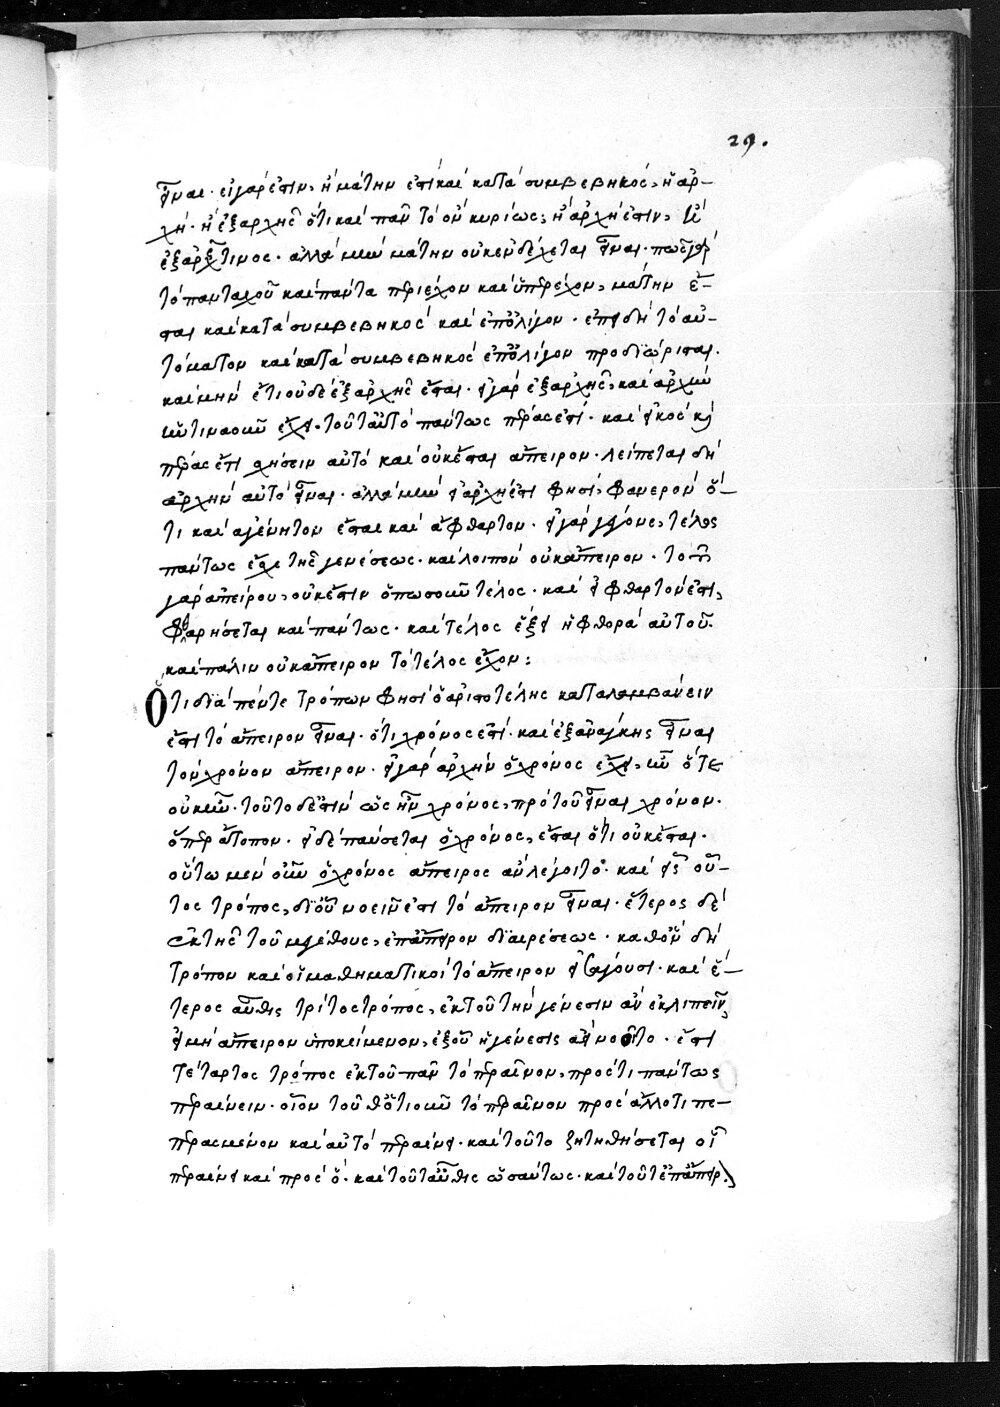 29.
εἶναι. εἰ γάρ ἐστιν, ἢ μάτην ἐστὶ καὶ κατὰ συμβεβηκός, ἢ ἀρ-
χή. ἢ ἐξ ἀρχῆς ὅτι καὶ πᾶν τὸ ὂν κυρίως, ἢ ἀρχή ἐστιν, ἢ
ἐξ ἀρχῆς τινος. ἀλλὰ μὴν μάτην οὐκ ἐνδέχεται εἶναι. πῶς γὰρ
τὸ πανταχοῦ καὶ πάντα περιέχον καὶ ὑπερέχον, μάτην ἔ-
σται καὶ κατὰ συμβεβηκὸς καὶ ἐπ' ὀλίγον. ἐπειδὴ τὸ αὐ-
τόματον καὶ κατὰ συμβεβηκὸς ἐπ' ὀλίγον προδιώρισται.
καὶ μὴν ἔτι οὐδὲ ἐξ ἀρχῆς ἔσται. εἰ γὰρ ἐξ ἀρχῆς, καὶ ἀρχὴν
ἡντιναοῦν ἔχει. τοῦτ' αὐτὸ πάντως πέρας ἐστί. καὶ εἰκὸς καὶ
πέρας ἔτι σχήσειν αὐτὸ καὶ οὐκ ἔσται ἄπειρον. λείπεται δὴ
ἀρχὴν αὐτὸ εἶναι. ἀλλὰ μὴν εἰ ἀρχή ἐστι φησί, φανερὸν ὅ-
τι καὶ ἀγένητον ἔσται καὶ ἄφθαρτον. εἰ γὰρ γέγονε, τέλος
πάντως ἔχει τῆς γενέσεως. καὶ λοιπὸν οὐκ ἄπειρον. τοῦ
γὰρ ἀπείρου, οὐκ ἔστιν ὁπωσοῦν τέλος. καὶ εἰ φθαρτόν ἐστι,
φθαρήσεται καὶ πάντως. καὶ τέλος ἕξει ἡ φθορὰ αὐτοῦ.
καὶ πάλιν οὐκ ἄπειρον τὸ τέλος ἔχον:
Ὅτι διὰ πέντε τρόπων φησὶ ὁ ἀριστοτέλης καταλαμβάνειν
ἔστι τὸ ἄπειρον εἶναι. ὅτι χρόνος ἐστί. καὶ ἐξ ἀνάγκης εἶναι
τὸν χρόνον ἄπειρον. εἰ γὰρ ἀρχὴν ὁ χρόνος ἔχει, ἦν ὅτε
οὐκ ἦν. τοῦτο δέ ἐστιν ὡς ἦν χρόνος, πρὸ τοῦ εἶναι χρόνον.
ὅπερ ἄτοπον. εἰ δὲ παύσεται ὁ χρόνος, ἔσται ὅτι οὐκ ἔσται.
οὕτω μὲν οὖν ὁ χρόνος ἄπειρος ἂν λέγοιτο. καὶ εἷς οὗ-
τος τρόπος, δι' οὗ νοεῖν ἐστι τὸ ἄπειρον εἶναι. ἕτερος δὲ
ἐκ τῆς τοῦ μεγέθους, ἐπ' ἄπειρον διαιρέσεως. καθ' ὃν δὴ
τρόπον καὶ οἱ μαθηματικοὶ τὸ ἄπειρον εἰσάγουσι. καὶ ἕ-
τερος αὖθις τρίτος τρόπος, ἐκ τοῦ τὴν γένεσιν ἂν ἐκλιπεῖν,
εἰ μὴ ἄπειρον ὑποκείμενον, ἐξ οὗ ἡ γένεσις ἂν νοοῖτο. ἔστι
τέταρτος τρόπος ἐκ τοῦ πᾶν τὸ περαῖνον, πρός τι πάντως
περαίνειν. οἷον τοῦθ' ὅτι οὖν τὸ περαῖνον πρὸς ἄλλο τι πε-
περασμένον καὶ αὐτὸ περαίνει. καὶ τοῦτο ζητηθήσεται οἷ
περαίνει καὶ πρὸς ὅ. καὶ τοῦτ' αὖθις ὡσαύτως. καὶ τοῦτ' ἐπ' ἄπειρ.